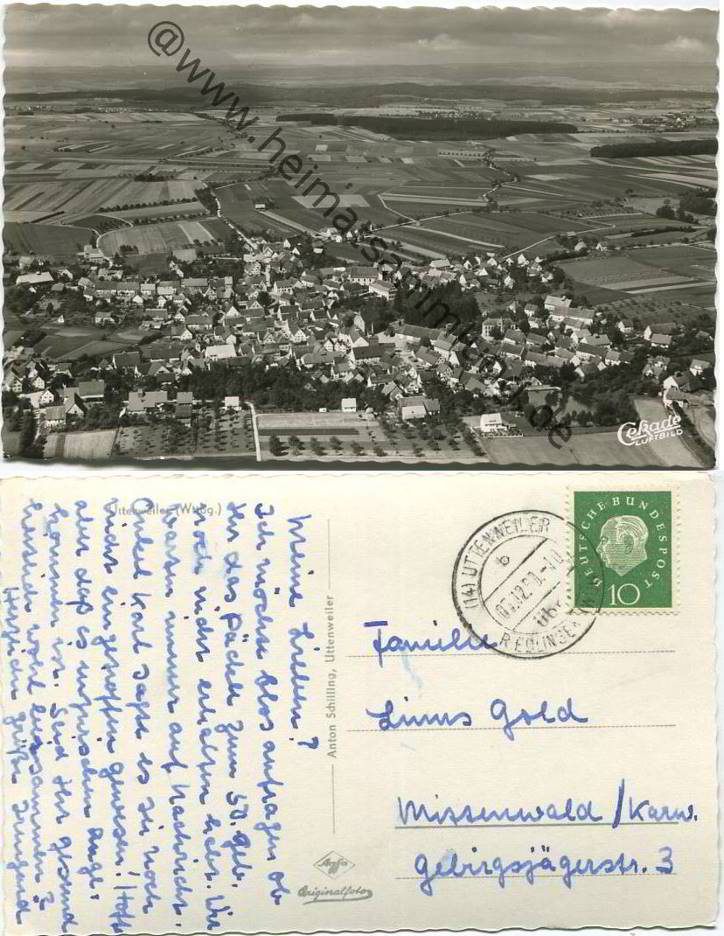 @www.heimatsammlung.de
Cekade
LUFTBILD
Uttenweiler (Wttbg.)
Meine Lieben!
Ich möchte blos anfragen ob
Ihr das Päckle zum 50. Geb.
noch nicht erhalten habt. Wir
warten immer auf Nachricht.
Onkel Karl sagte es sei noch
nicht eingetroffen gewesen! Hoffe
aber daß es inzwischen ange-
kommen ist. Seid Ihr gesund
beisammen?
Herzliche Grüße
Anton Schilling, Uttenweiler
Agfa
Originalfoto
(14) UTTENWEILER
b
über
RIEDLINGEN
DEUTSCHE BUNDESPOST
10
Familie
Linus Gold
Mittenwald / Karw.
Gebirgsjägerstr. 3